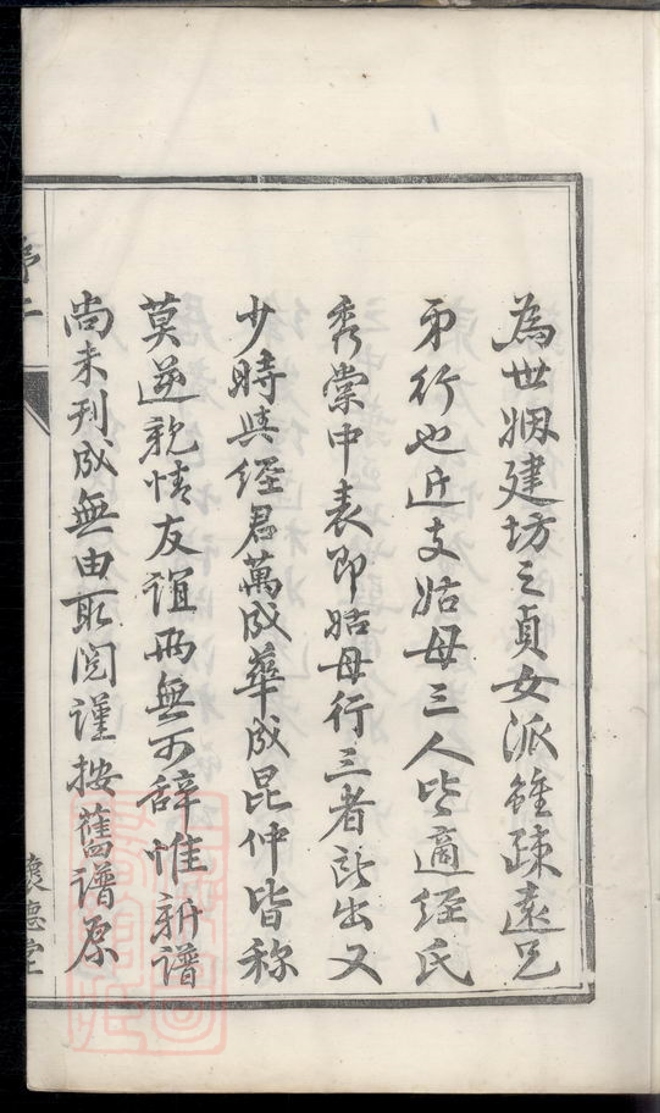 為世姻建坊之貞女派雖疎遠兄
弟行也近支姑母三人皆適经氏
秀棠中表即姑母行三者所出又
少時與經君萬成華成昆仲皆称
莫逆親情友誼两無可辞惟新譜
尚未刊成無由取閲謹按舊譜原
序二
懷德堂